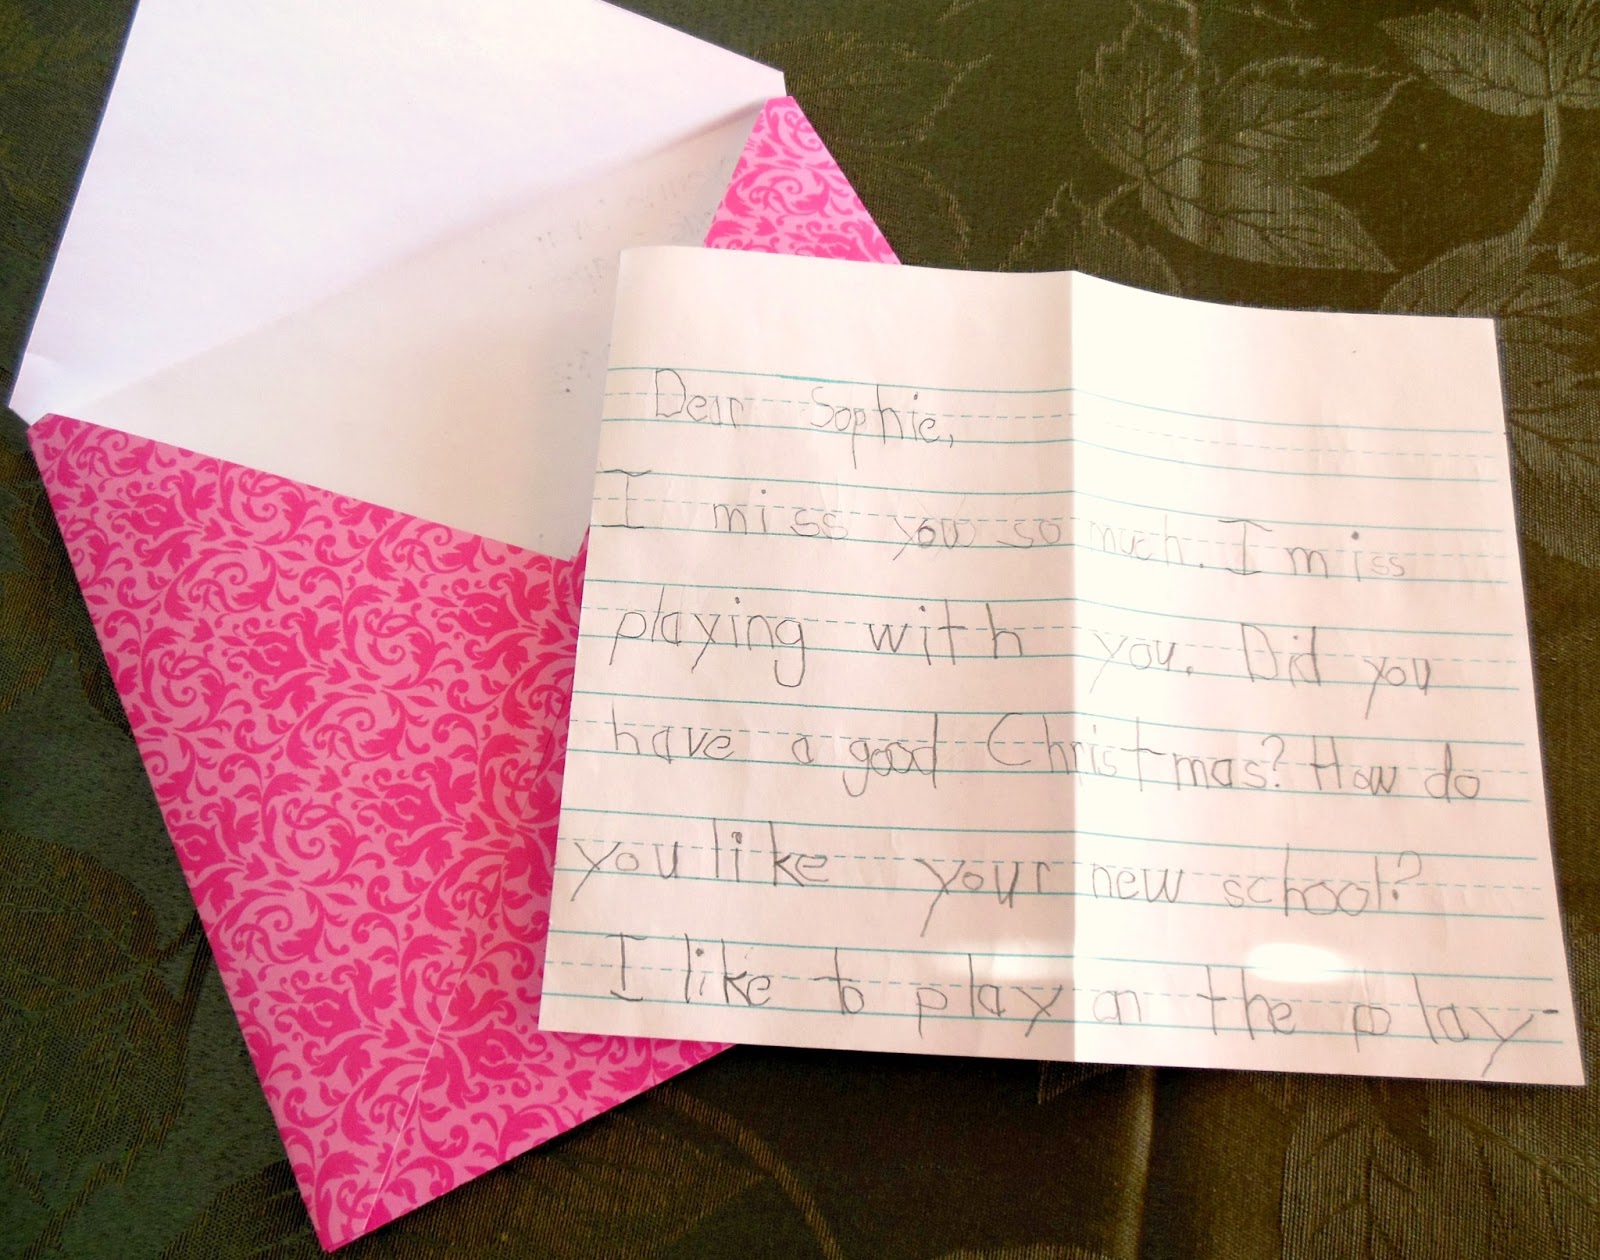 Dear Sophie,
I miss you so much. I miss
playing with you. Did you
have a good Christmas? How do
you like your new school?
I like to play on the play-